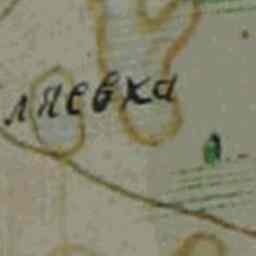 ляевка